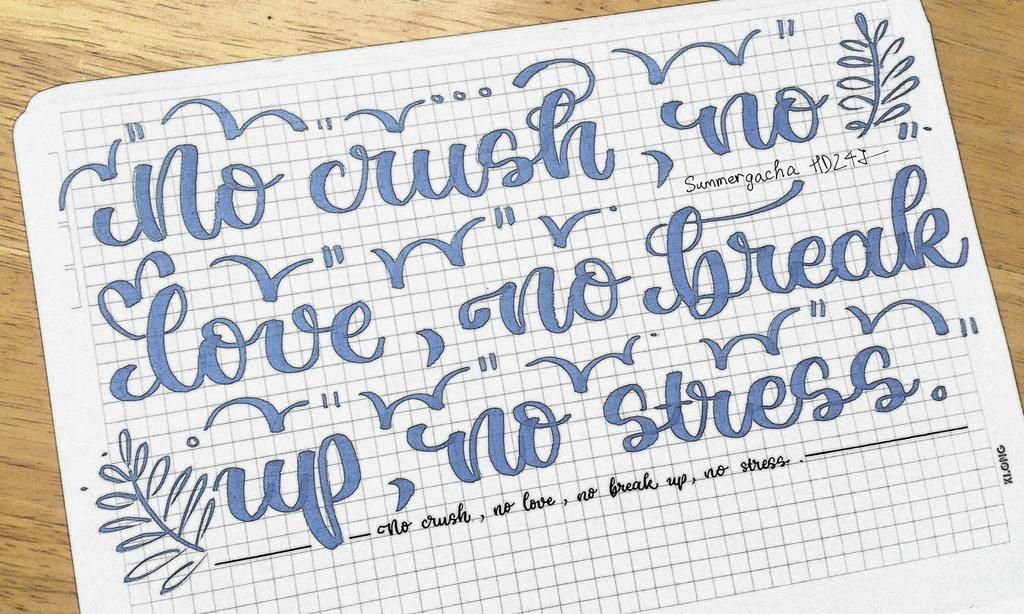 No crush, no
Summergacha HD24J
love, no break
up, no stress.
No crush, no love, no break up, no stress.
KLONG